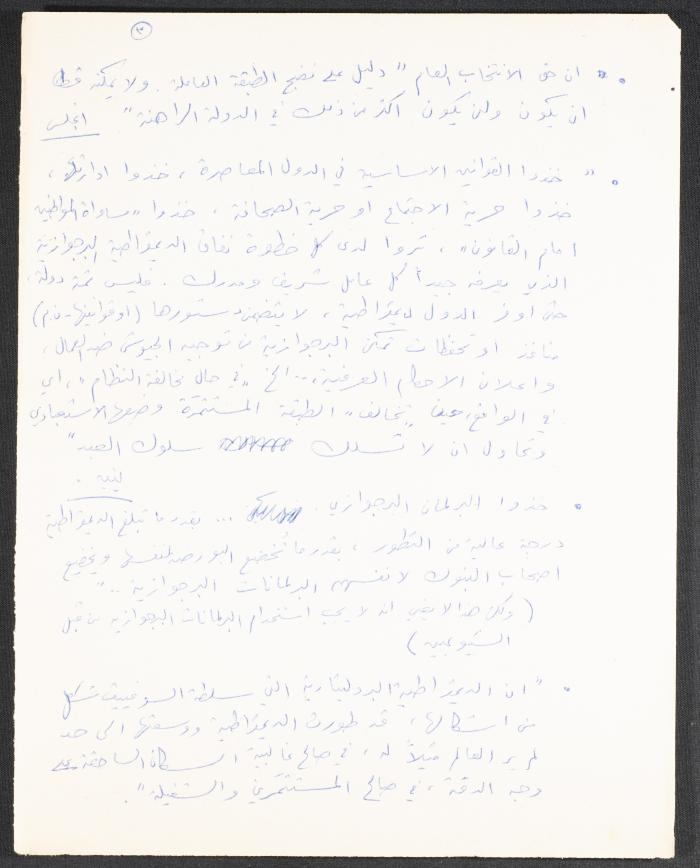 ٣
• "ان حق الانتخاب العام "دليل على نضج الطبقة العاملة. ولا يمكنه قط
ان يكون ولن يكون اكثر من ذلك في الدولة الراهنة". انجلس
• "خذوا القوانين الاساسية في الدول المعاصرة، خذوا ادارتها،
خذوا حرية الاجتماع او حرية الصحافة، خذوا "مساواة المواطنين
امام القانون"، تروا لدى كل خطوة نفاق الديمقراطية البرجوازية
الذي يعرفه جيداً كل عامل شريف ومدرك. فليس ثمة دولة،
حتى اوفر الدول ديمقراطية، لا يتضمن دستورها (او قوانينها - ن.م)
منافذ او تحفظات تمكن البرجوازية من توجيه الجيوش ضد العمال،
واعلان الاحكام العرفية،... الخ "في حال مخالفة النظام"، اي
في الواقع، حين "تخالف" الطبقة المستثمرة وضعها الاستعبادي
وتحاول ان لا تسلك سلوك العبيد"
لينين.
• خذوا البرلمان البرجوازي. ... بقدر ما تبلغ الديمقراطية
درجة عالية من التطور، بقدر ما تُخضع البورصة لنفسها ويخضع
اصحاب البنوك لانفسهم البرلمانات البرجوازية .."
(ولكن هذا لا يعني انه لا يجب استخدام البرلمانات البرجوازية من قبل
الشيوعيين)
• "ان الديمقراطية البروليتارية التي سلطة السوفييت شكل
من اشكالها، قد طورت الديمقراطية ووسعتها الى حد
لم ير العالم مثيلاً له، في صالح غالبية السكان الساحقة على
وجه الدقة، في صالح المستثمَرين والشغيلة".